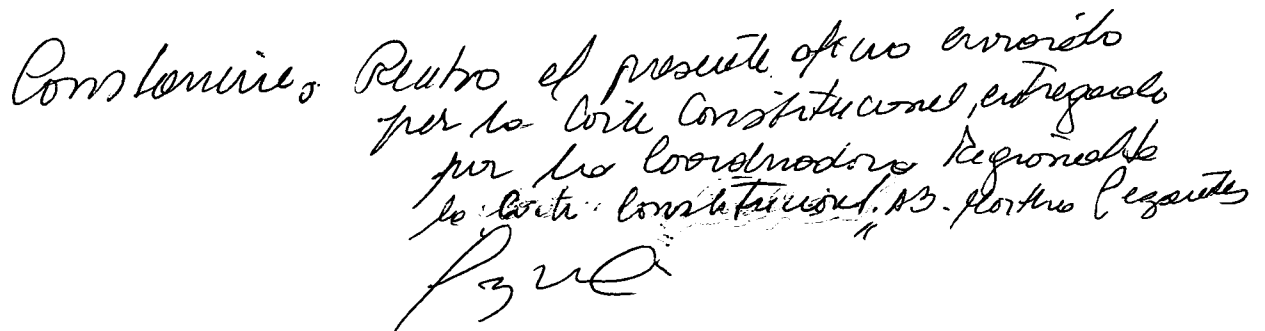 Constancia: Recibo el presente oficio enviado
por la Corte Constitucional, entregado
por la Coordinadora Regional de
la Corte Constitucional, AB. Martha